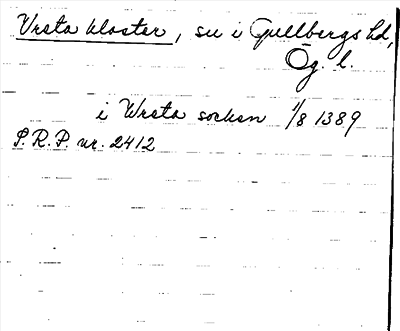 Vrsta kloster, sn i Gullbergs hd,
Ög. l.
i Wrsta socken 1/8 1389
S.R.P. nr. 2412